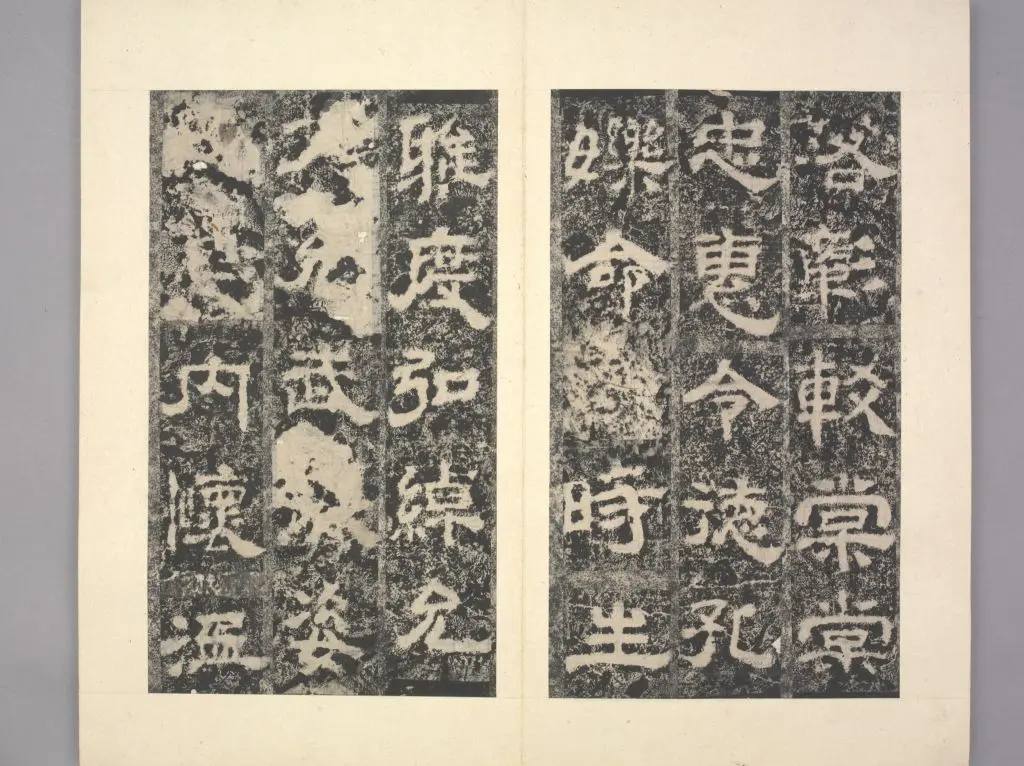 落彰較棠棠
忠惠令德孔
爍命時生
雅度弘綽允
文允武厥姿
內懷溫